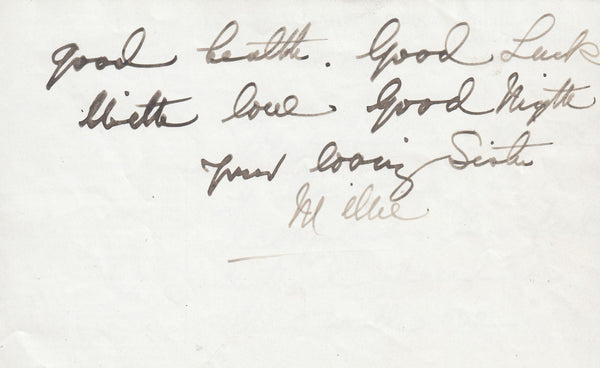 good health. Good Luck
With love. Good Night
your loving Sister
Millie